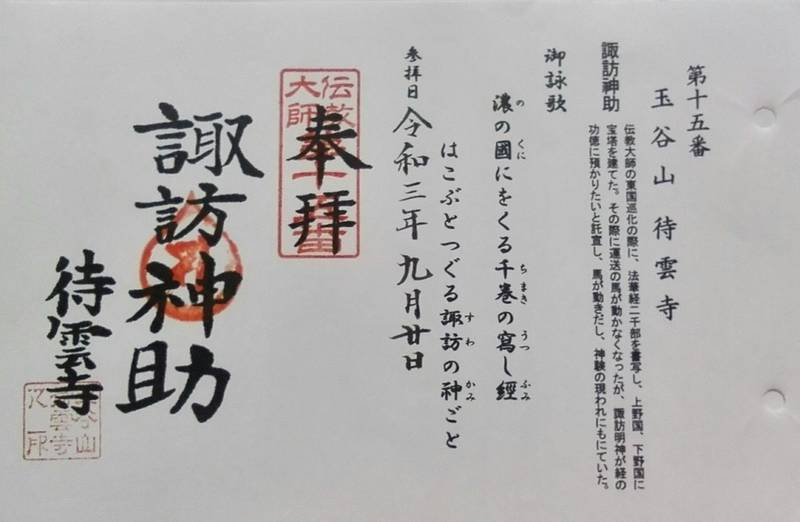 第十五番
玉谷山 待雲寺
諏訪神助
伝教大師の東国巡化の際に、法華経二千部を書写し、上野国、下野国に
宝塔を建てた。その際に運送の馬が動かなくなったが、諏訪明神が経の
功徳に預かりたいと託宣し、馬が動きだし、神験の現われにもにていた。
御詠歌
濃の國にをくる千巻の寫し經
の くに ちまき うつ ふみ
はこぶとつぐる諏訪の神ごと
すわ かみ
参拝日 令和三年九月廿日
奉拝
伝教
大師
諏訪神助
待雲寺